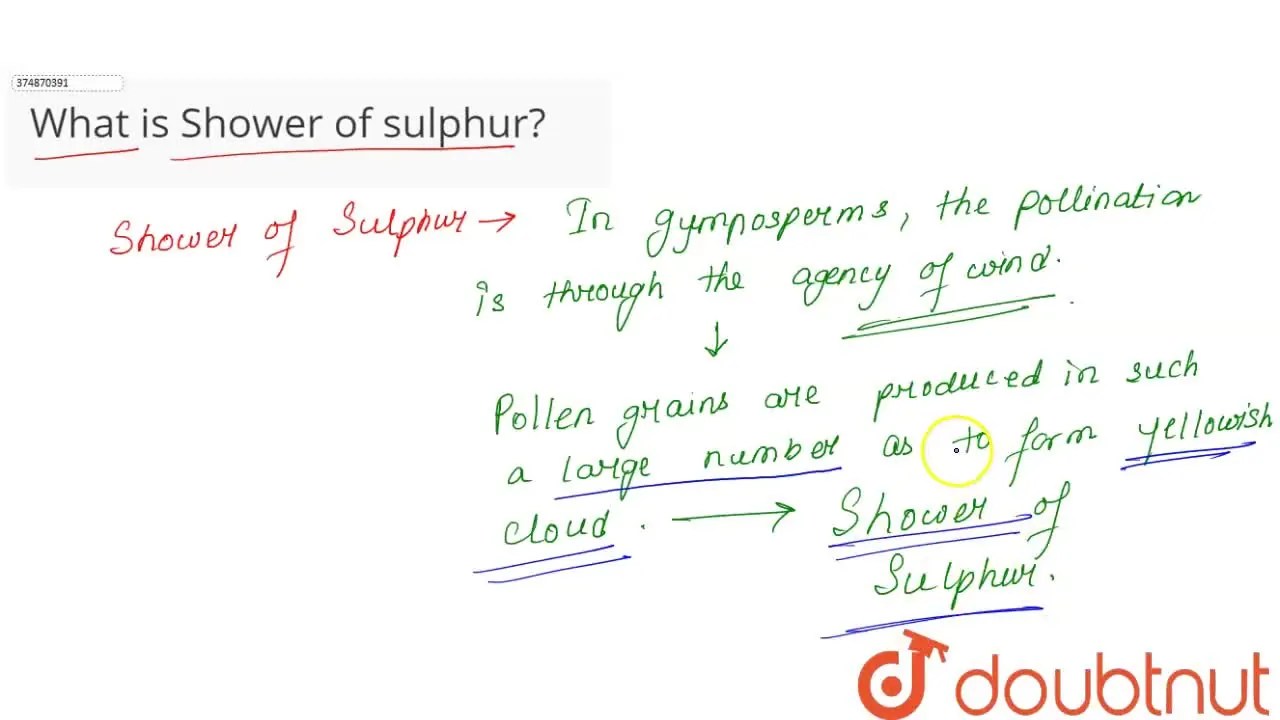 374870391
What is Shower of sulphur?
Shower of Sulphur → In gymposperms, the pollination
is through the agency of wind.
↓
Pollen grains are produced in such
a large number as to form yellowish
cloud. → Shower of
Sulphur.
doubtnut